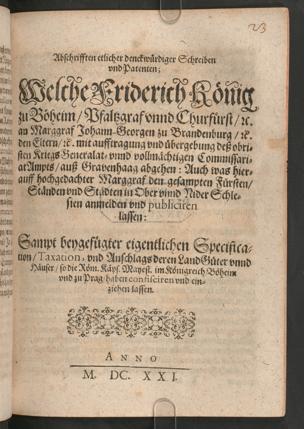 23
Abschrifften etlicher denckwürdiger Schreiben
vnd Patenten;
Welche Friderich König
zu Böheim / Pfaltzgraf vnnd Churfürst / ꝛc.
an Marggraf Johann-Georgen zu Brandenburg / ꝛc.
den Eltern / ꝛc. mit aufftragung vnd übergebung deß obri-
sten Kriegs Generalat- vnnd vollmächtigen Commissari-
at Ampts / auß Gravenhaag abgehen: Auch was hier-
auff hochgedachter Marggraf den gesampten Fürsten /
Ständen vnd Städten in Ober vnnd Nider Schle-
sien anmelden vnd publiciren
lassen:
Sampt beygefügter eigentlichen Specifica-
tion / Taxation, vnd Anschlags deren LandGüter vnnd
Häuser / so die Röm. Käys. Mayest. im Königreich Böheim
vnd zu Prag haben confisciren vnd ein-
ziehen lassen.
ANNO
M. DC. XXI.